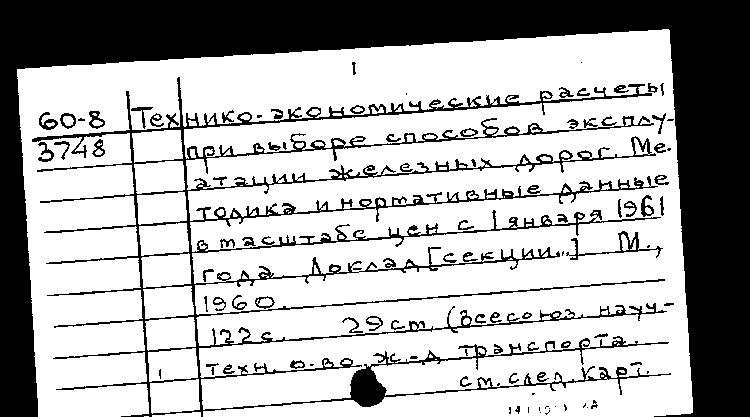 I
60-8 Технико-экономические расчеты
3748 при выборе способов эксплу-
атации железных дорог. Ме-
тодика и нормативные данные
в масштабе цен с 1 января 1961
года. Доклад [секции...] М.,
1960.
122 с. 29 см. (Всесоюз. науч.-
техн. о-во ж.-д. транспорта.
см. след. карт.